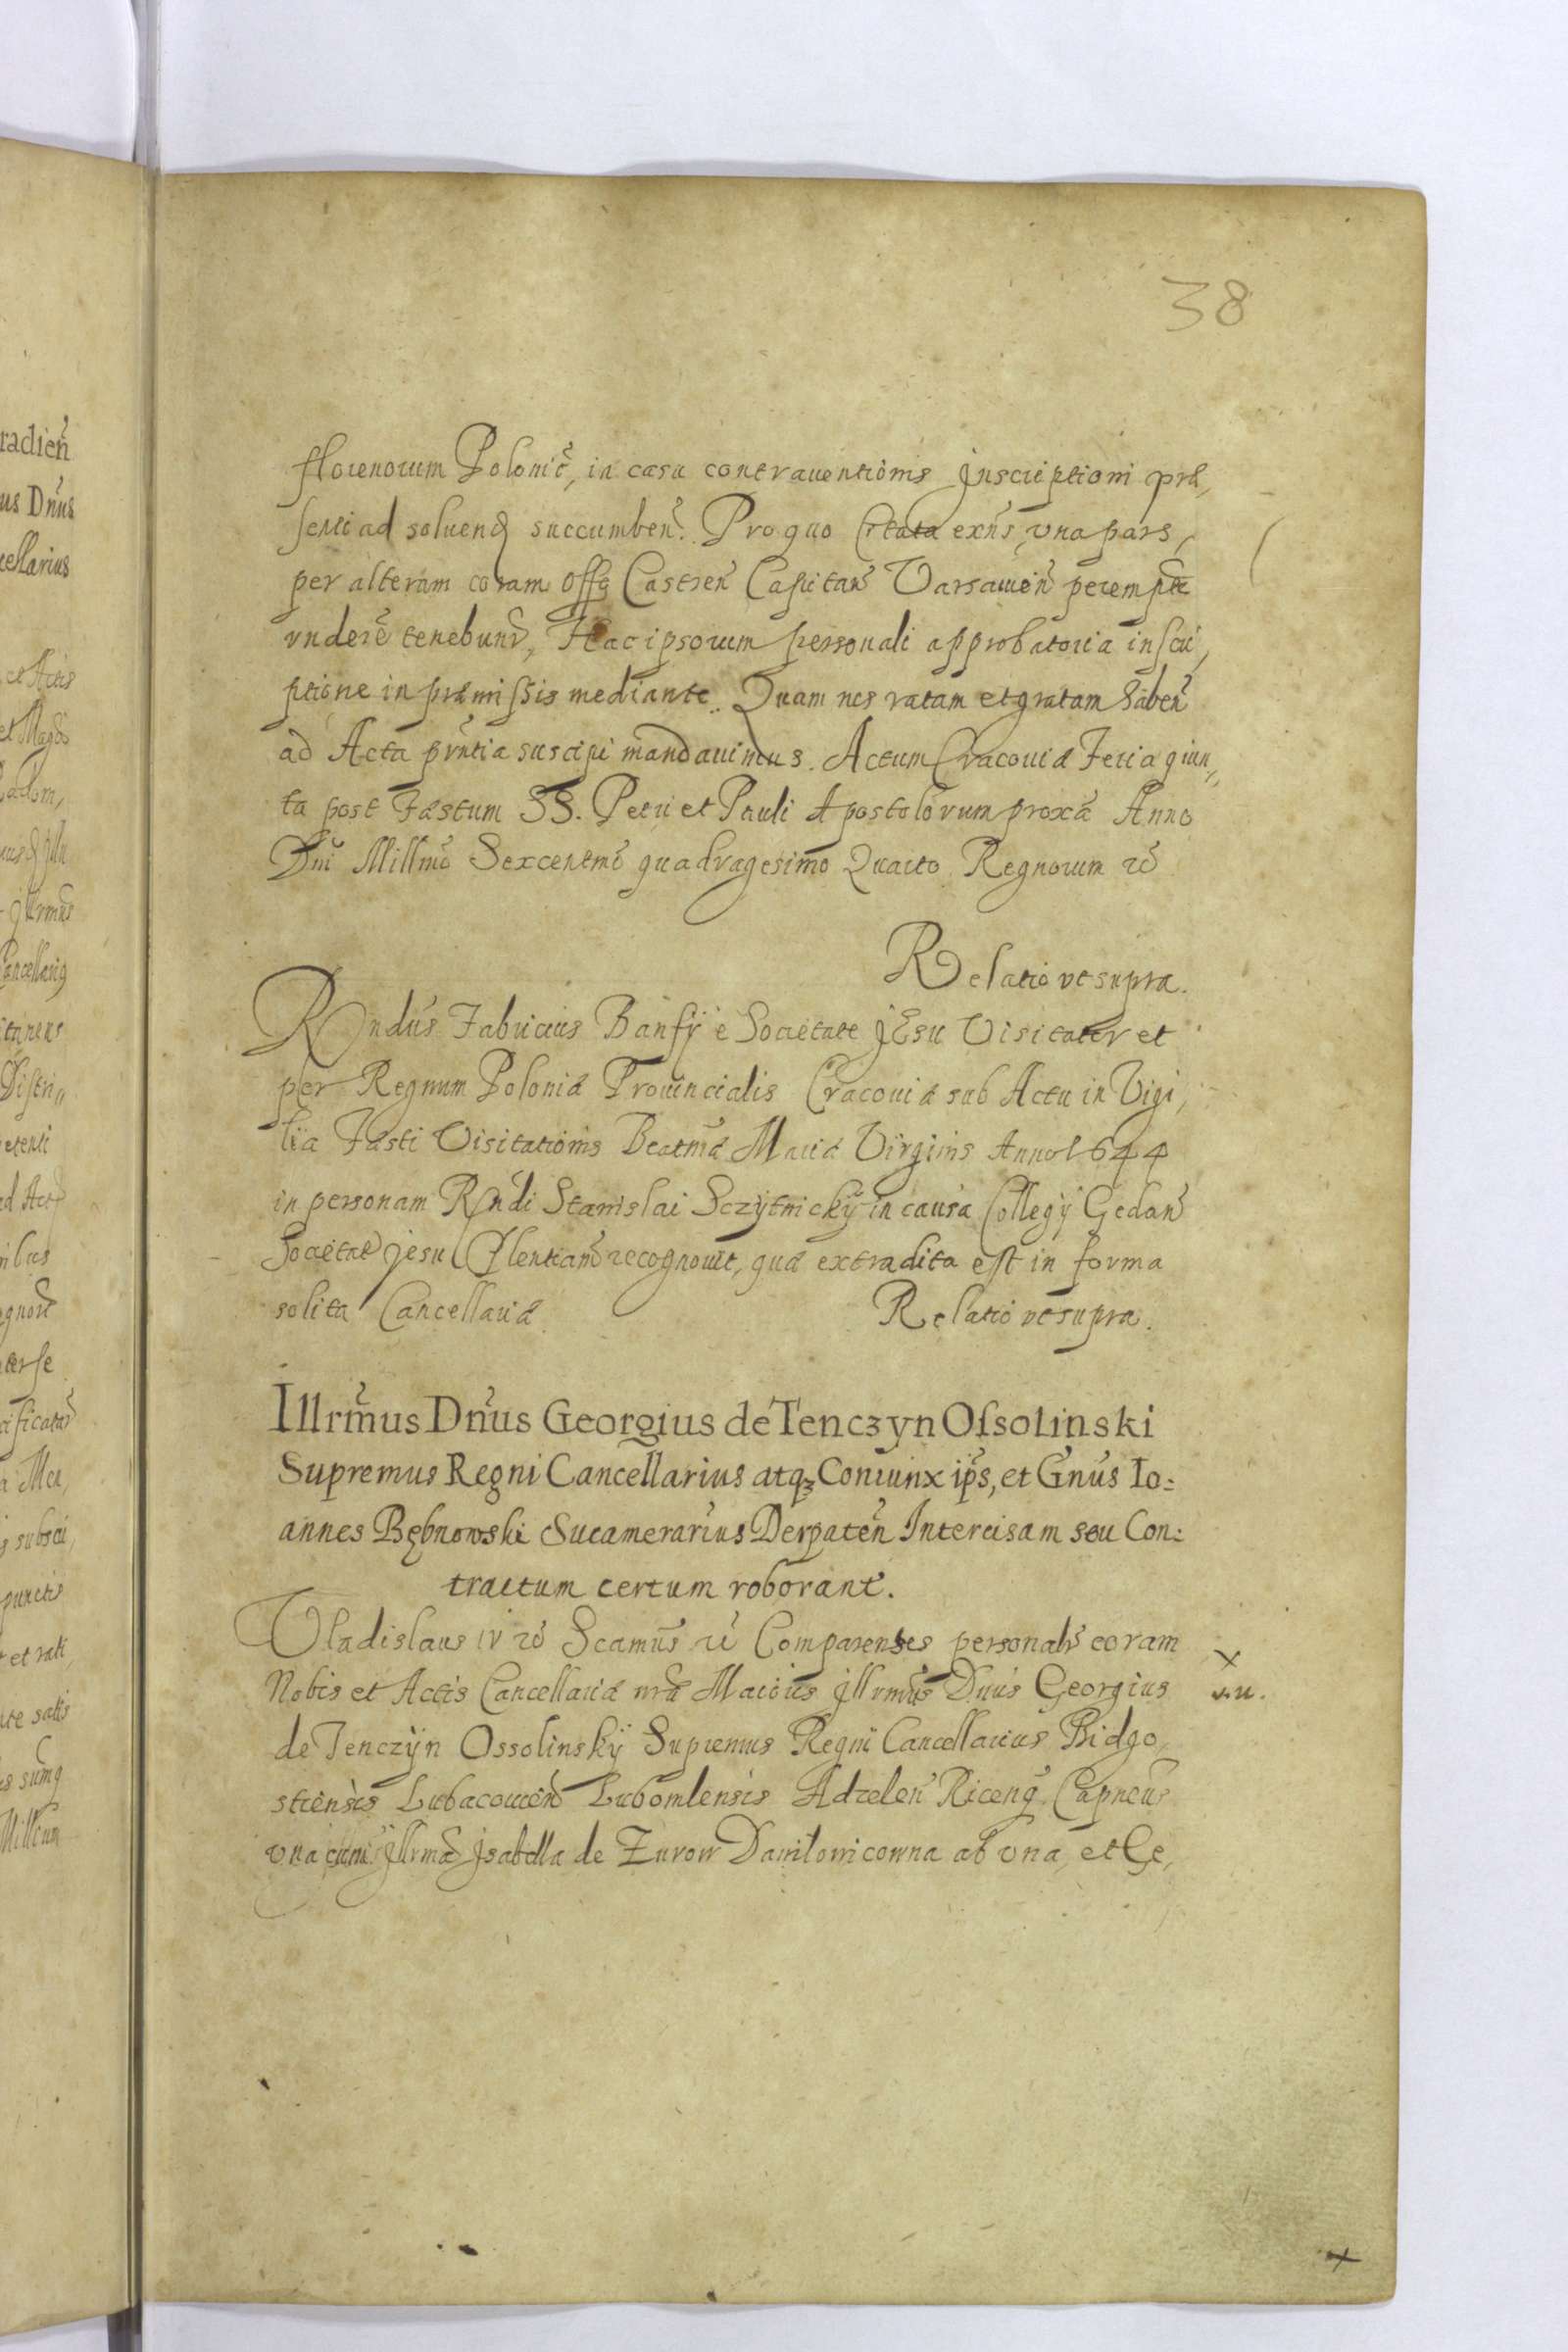 38
florenorum Polonic̃, in casu contrauentionis Inscriptioni præ,
senti ad soluend succumbeñ. Pro quo Citata exñs, vna pars,
per alteram coram Offo Castreñ Capitañ Varsauieñ perempte
rndere tenebunt, Hac ipsorum personali approbatoria inscri,
ptione in præmissis mediante. Quam nos ratam et gratam habeñ
ad Acta pñtia suscipi mandauimus. Actum Cracouiæ Feria quin,,
ta post Festum SS. Petri et Pauli Apostolorum proxa Anno
Dni Millmo Sexcentmo quadragesimo Quarto Regnorum etc̃
Relatio vt supra.
Rndus Fabricius Banfÿ è Societate JEsu Visitator et
per Regnum Poloniæ Prouincialis Cracouiæ sub Actu in Vigi,
lia Festi Visitationis Beatmæ Mariæ Virginis Anno 1644
in personam Rndi Stanislai Sczÿtnickÿ in causa Collegÿ Gedañ
Societat Jesu Plentiam recognouit, quæ extradita est in forma
solita Cancellariæ Relatio vt supra.
Illrm̃us Dn̄us Georgius de Tenczyn Ossolinski
Supremus Regni Cancellarius atqꝫ Coniunx ip̃s, et Gn̄us Io:
annes Bębnowski Sucamerarius Derpateñ Intercisam seu Con:
tractum certum roborant.
Vladislaus IV etc̃ Scamus etc̃ Comparentes personalr coram
Nobis et Actis Cancellariæ nræ Maioris Illrmus Dnus Georgius
de Tenczÿn Ossolinskÿ Supremus Regni Cancellarius Bidgo,
stiensis Lubacouieñ Lubomlensis Adzeleñ Ricenq Capneus
vna cum Illrma Isabella de Zurow Daniłowicowna ab vna, et Ge,